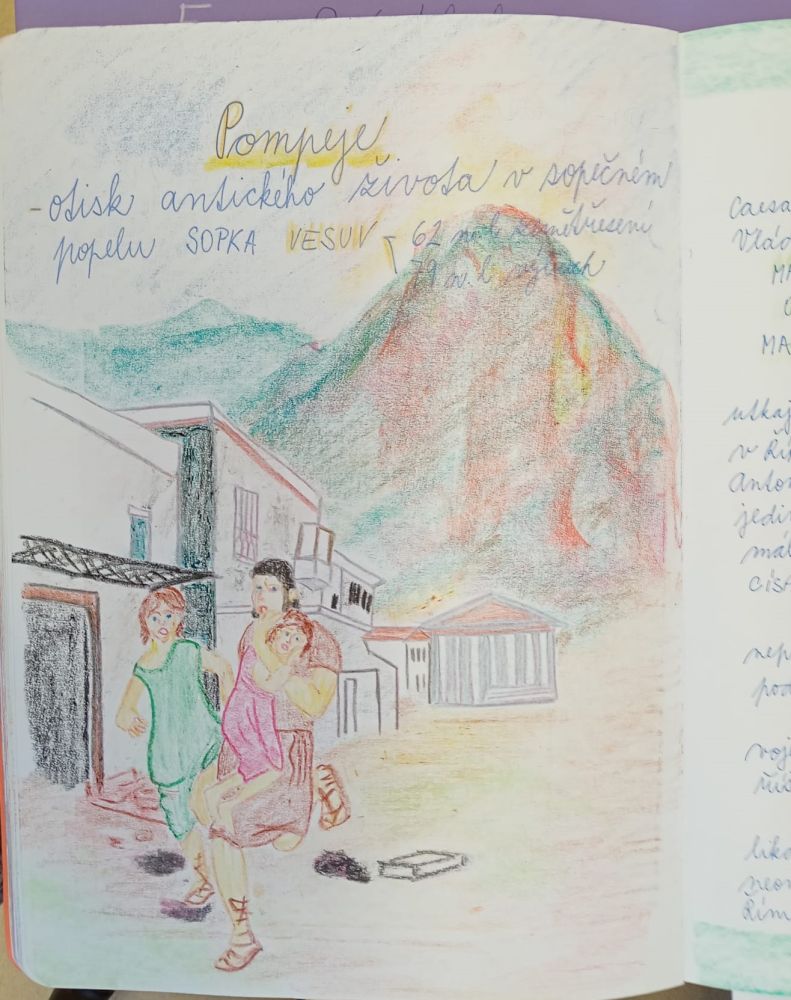 Pompeje
- otisk antického života v sopečném
popelu SOPKA VESUV - 62 n. l. zemětřesení
79 n. l. výbuch
Caesa
Vlád
MA
MA
utkaj
v Ří
Anton
jedi
mál
CÍSA
nep
pod
voj
lik
neo
Řím